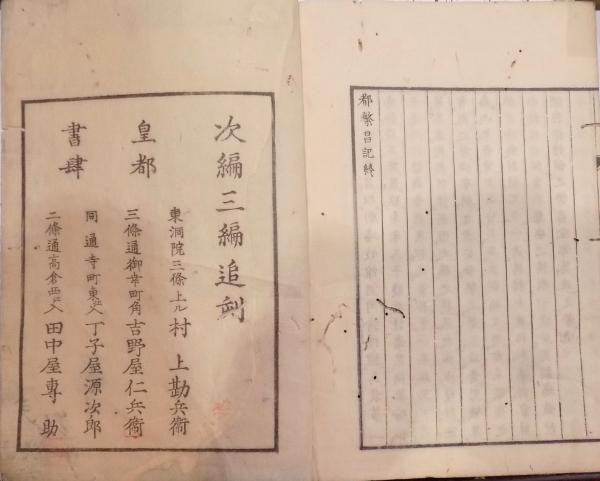 都繁昌記終
次編三編追刻
皇都
書肆
東洞院三條上ル 村上勘兵衞
三條通御幸町角 吉野屋仁兵衞
同通寺町東ヘ入 丁子屋源次郎
二條通高倉西ヘ入 田中屋専助